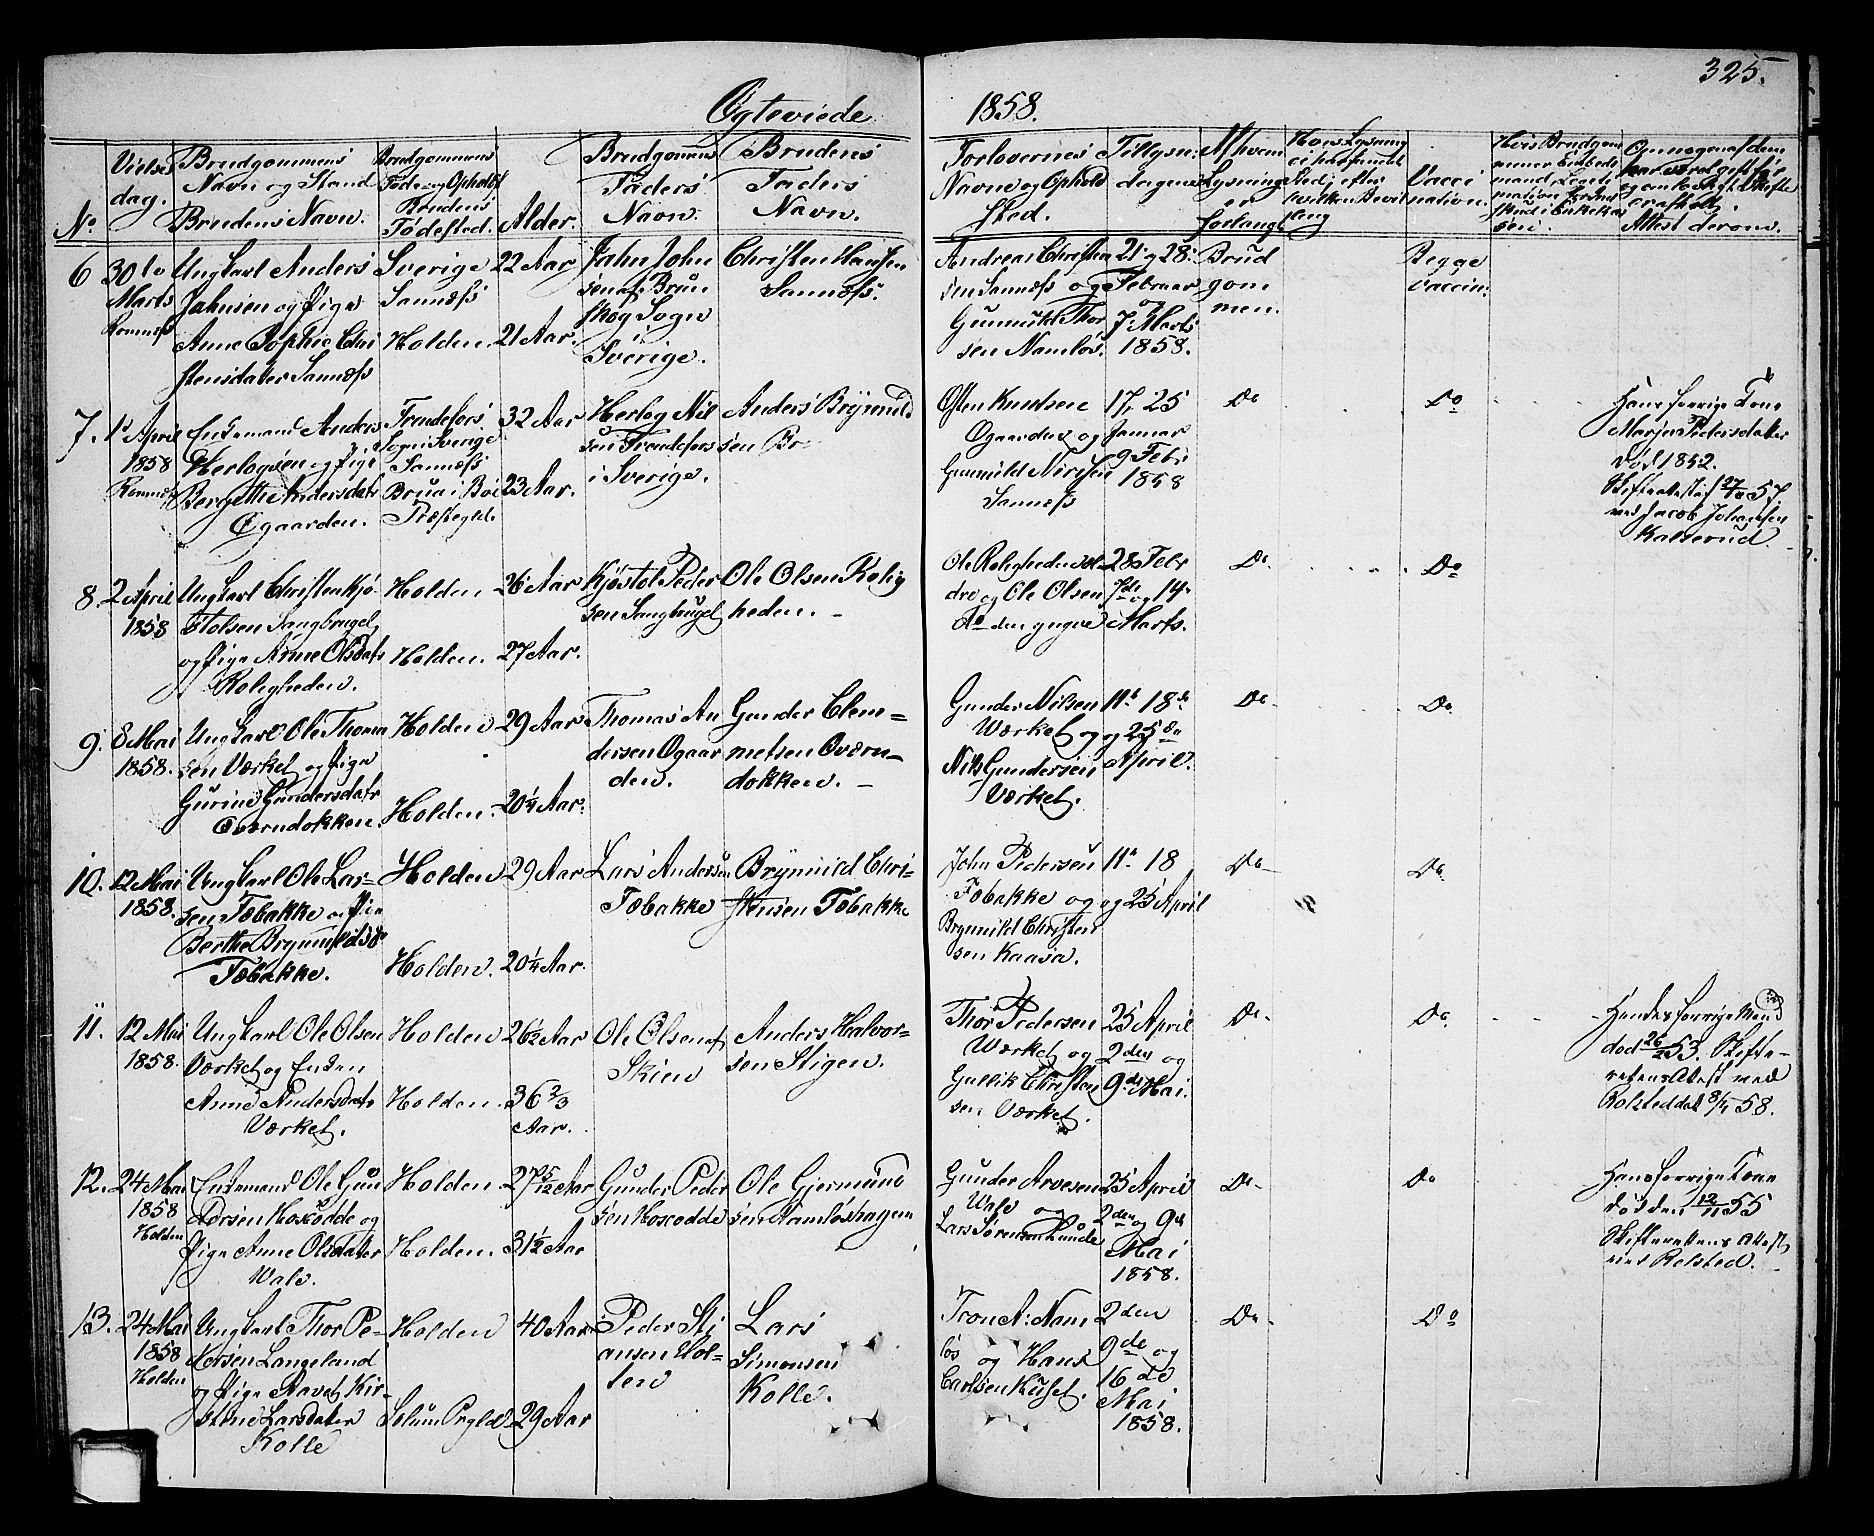 325.
Ægteviede
1858.
No
Vielses
dag.
Brudgommens
Navn og Stand
Brudens Navn.
Brudgommens
Føde og Opholds
Brudens
Fødested.
Alder.
Brudgomens
Faders
Navn.
Brudens
Faders
Navn.
Forlovernes
Navne og Ophold
sted.
Tillysn:
dagene
Af hvem
Lysning
er
forlangt
Hvis Lysning
ei har fundet
Sted, efter
hvilken Bevil
ling
Vacci
nation.
Hvis Brudgom
6
30te
Marts
Romnæs
Ungkarl Anders
Jahnsen og Pige
Anne Sophie Chri
stensdater Sannæss
Sverige
Sannæss
Holden
22 Aar
21 Aar.
Jahn John
sen af Brun
skog Sogn
i
Sverige.
Christen Hansen
Sannæss.
Andreas Christen
sen Sannæss og
Gunnuld Thor
sen Namløs.
21 og 28
Februar
og
7 Marts
1858.
Brud
gom
men.
Begge
vaccin:
7.
1st April
1858
Romnæs
Enkemand Anders
Herlogsen og Pige
Bergethe Andersdatr
Øgaarden.
Trendefors
Sogn i Sverige
Sannæss
Brua i Bøe
Præstegld.
32 Aar
23 Aar.
Herlog Nil
sen Trendefors
i Sverige.
Anders Brynnild
sen Br
Osten Knudsen
Ogaarden og
Gunnuld Nirisen
Sannæss
17, 25
Januar
9 Febr
1858
Do
Do
Hans forrige Kone
Marje Pedersdater
død 1852.
Skifteattest af 27/ 57
ved Jacob Johansen
Kalserud.
8.
2 April
1858
Ungkarl Christen Kjø
stolsen Sangbugel
og Pige Anne Olsdatr
Roligheden.
Holden
Holden.
26 Aar
27 Aar.
Kjøstol Peder
sen Sangbugel
Ole Olsen Rolig
heden. -
Ole Roligheden ol
dre og Ole Olsen
do den yngre
28 Febr
7de og 14
Marts.
Do
Do
9.
8 Mai
1858.
Ungkarl Ole Thoma
sen Værket og Pige
Gurine Gundersdatr
Oværndokken.
Holden
Holden.
29 Aar
20 1/4 Aar.
Thomas An
dersen Ogaar
den.
Gunder Clem=
metsen Oværn=
dokken. -
Gunder Nilsen
Værket og
Nils Gundersen
Værket.
11te 18de
og 25de
April.
Do
Do
10.
12 Mai
1858.
Ungkarl Ole Lar=
sen Tobakke og Pige
Berthe Brynnildsdr
Tobakke.
Holden
Holden.
29 Aar
20 1/4 Aar.
Lars Andersen
Tobakke
Brynnild Chri=
stensen Tobakke
John Pedersen
Tobakke og
Brynnild Christen
sen Kaasa.
11te 18
og 25 April
Do
Do
11.
12 Mai
1858.
Ungkarl Ole Olsen
Værket og Enken
Anne Andersdatr
Værket.
Holden
Holden.
26 1/2 Aar
36 2/3
Aar.
Ole Olsen af
Skien
Anders Halvor=
sen Stigen.
Thor Pedersen
Værket og
Gullik Christen
sen Værket.
25 April
2den og
9de Mai.
Do
Do
Hendes forrige Mand
død 26/2 53. Skifte=
rettens Attest med
Rolsted dat 8/1 58.
12.
24 Mai
1858
Holden
Enkemand Ole Gun
dersen Hoscodde og
Pige Anne Olsdater
Wale.
Holden.
Holden.
27 5/12 Aar
31 1/2 Aar
Gunder Peder
sen Hoscodde
Ole Gjermund
sen Namløshagen
Gunder Arvesen
Wale og
Lars Sørensen Lunde
25 April
2den og 9de
Mai
1858.
Do
Do
Hans forrige Kone
død den 12/11 55
Skifterettens Attest
ved Rolsted.
13.
24 Mai
1858
Holden
Ungkarl Thor Pe=
dersen Langeland
og Pige Aavet Kir=
stine Larsdater
Kolle
Holden
Solum Prgld.
40 Aar
29 Aar
Peder Sti
ansen Hol=
ten
Lars
Simonsen
Kolle.
Tron A: Nam
løs og Hans
Carlsen Huset.
2den
9de og
16de
Mai
1858.
Do
Do